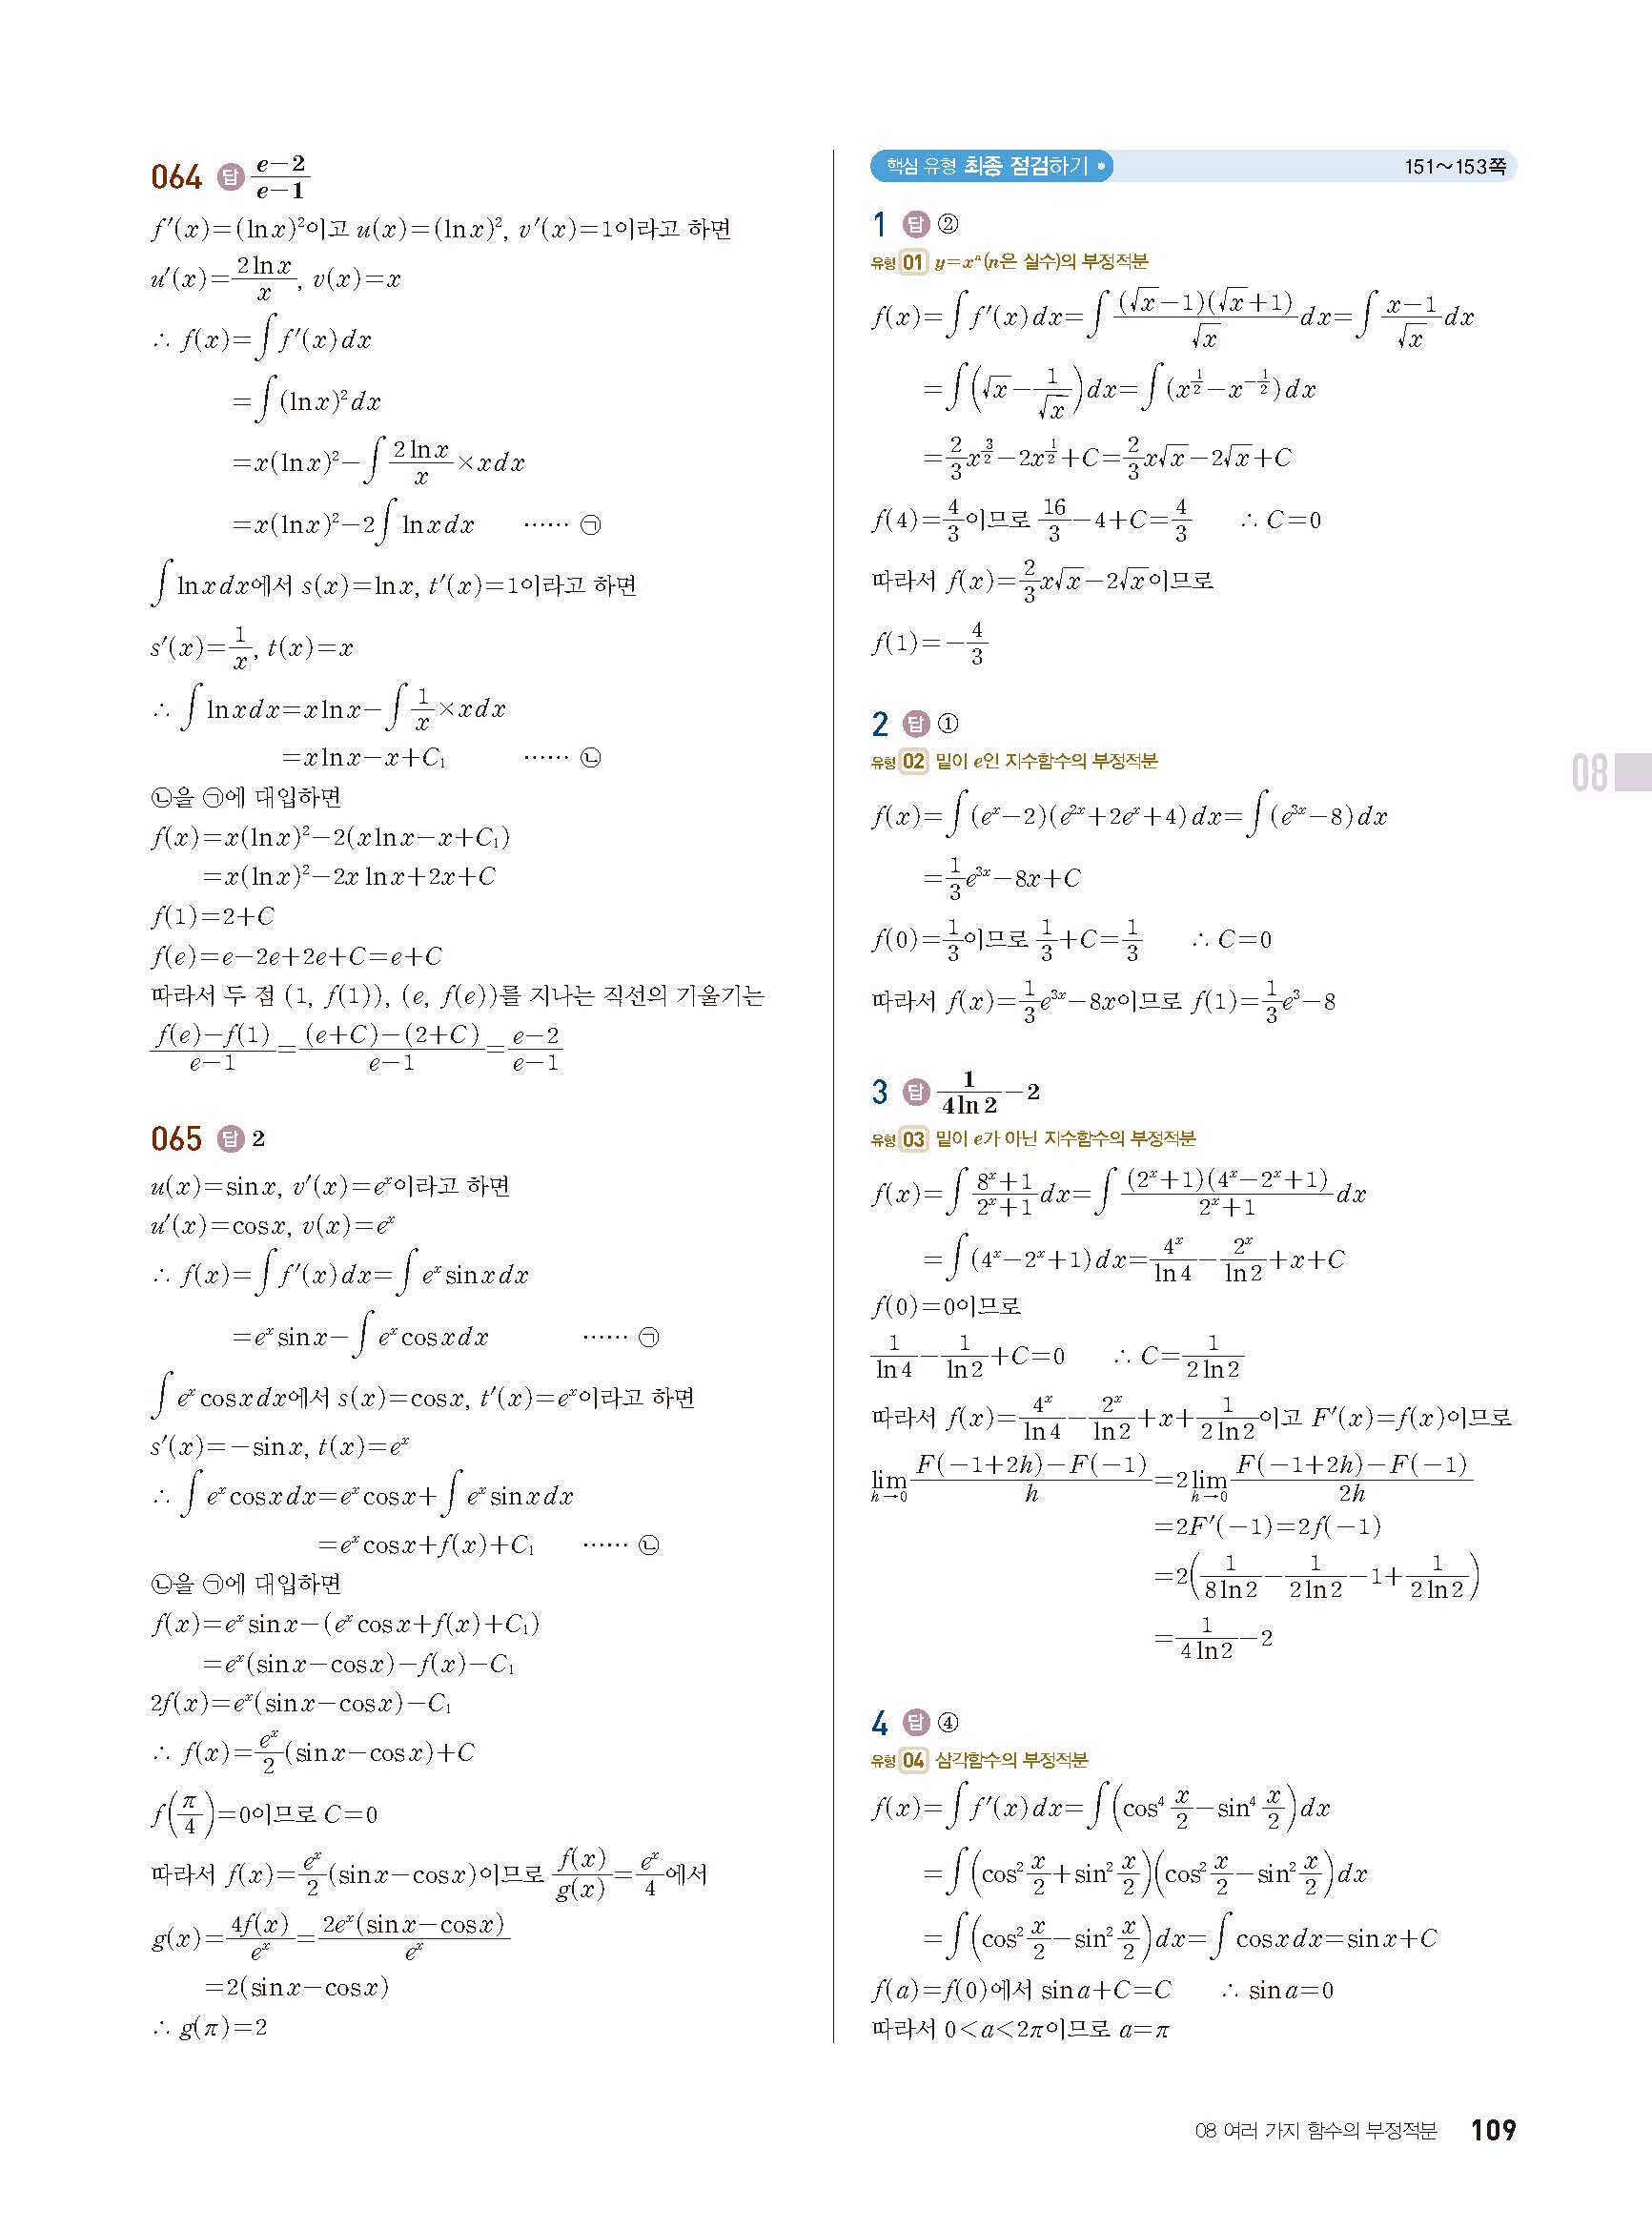 064 답 (e-2)/(e-1)
f'(x)=(ln x)²이고 u(x)=(ln x)², v'(x)=1이라고 하면
u'(x)=(2 ln x)/x, v(x)=x
∴ f(x)=∫f'(x)dx
=∫(ln x)²dx
=x(ln x)²-∫(2 ln x)/x×xdx
=x(ln x)²-2∫ln xdx ⋯⋯ ㉠
∫ln xdx에서 s(x)=ln x, t'(x)=1이라고 하면
s'(x)=1/x, t(x)=x
∴ ∫ln xdx=x ln x-∫1/x×xdx
=x ln x-x+C₁ ⋯⋯ ㉡
㉡을 ㉠에 대입하면
f(x)=x(ln x)²-2(x ln x-x+C₁)
=x(ln x)²-2x ln x+2x+C
f(1)=2+C
f(e)=e-2e+2e+C=e+C
따라서 두 점 (1, f(1)), (e, f(e))를 지나는 직선의 기울기는
(f(e)-f(1))/(e-1)=((e+C)-(2+C))/(e-1)=(e-2)/(e-1)
065 답 2
u(x)=sin x, v'(x)=eˣ이라고 하면
u'(x)=cos x, v(x)=eˣ
∴ f(x)=∫f'(x)dx=∫eˣ sin xdx
=eˣ sin x-∫eˣ cos xdx ⋯⋯ ㉠
∫eˣ cos xdx에서 s(x)=cos x, t'(x)=eˣ이라고 하면
s'(x)=-sin x, t(x)=eˣ
∴ ∫eˣ cos xdx=eˣ cos x+∫eˣ sin xdx
=eˣ cos x+f(x)+C₁ ⋯⋯ ㉡
㉡을 ㉠에 대입하면
f(x)=eˣ sin x-(eˣ cos x+f(x)+C₁)
=eˣ(sin x-cos x)-f(x)-C₁
2f(x)=eˣ(sin x-cos x)-C₁
∴ f(x)=eˣ/2(sin x-cos x)+C
f(π/4)=0이므로 C=0
따라서 f(x)=eˣ/2(sin x-cos x)이므로 f(x)/g(x)=eˣ/4에서
g(x)=4f(x)/eˣ=2eˣ(sin x-cos x)/eˣ
=2(sin x-cos x)
∴ g(π)=2
핵심 유형 최종 점검하기 • 151~153쪽
1 답 ②
유형 01 y=xⁿ(n은 실수)의 부정적분
f(x)=∫f'(x)dx=∫((√x-1)(√x+1))/√x dx=∫(x-1)/√x dx
=∫(√x-1/√x)dx=∫(x^(1/2)-x^(-1/2))dx
=2/3x^(3/2)-2x^(1/2)+C=2/3x√x-2√x+C
f(4)=4/3이므로 16/3-4+C=4/3 ∴ C=0
따라서 f(x)=2/3x√x-2√x이므로
f(1)=-4/3
2 답 ①
유형 02 밑이 e인 지수함수의 부정적분
f(x)=∫(eˣ-2)(e²ˣ+2eˣ+4)dx=∫(e³ˣ-8)dx
=1/3e³ˣ-8x+C
f(0)=1/3이므로 1/3+C=1/3 ∴ C=0
따라서 f(x)=1/3e³ˣ-8x이므로 f(1)=1/3e³-8
3 답 1/(4 ln 2)-2
유형 03 밑이 e가 아닌 지수함수의 부정적분
f(x)=∫(8ˣ+1)/(2ˣ+1)dx=∫((2ˣ+1)(4ˣ-2ˣ+1))/(2ˣ+1)dx
=∫(4ˣ-2ˣ+1)dx=4ˣ/ln 4-2ˣ/ln 2+x+C
f(0)=0이므로
1/ln 4-1/ln 2+C=0 ∴ C=1/(2 ln 2)
따라서 f(x)=4ˣ/ln 4-2ˣ/ln 2+x+1/(2 ln 2)이고 F'(x)=f(x)이므로
lim h→0 (F(-1+2h)-F(-1))/h=2 lim h→0 (F(-1+2h)-F(-1))/2h
=2F'(-1)=2f(-1)
=2(1/(8 ln 2)-1/(2 ln 2)-1+1/(2 ln 2))
=1/(4 ln 2)-2
4 답 ④
유형 04 삼각함수의 부정적분
f(x)=∫f'(x)dx=∫(cos⁴ x/2-sin⁴ x/2)dx
=∫(cos² x/2+sin² x/2)(cos² x/2-sin² x/2)dx
=∫(cos² x/2-sin² x/2)dx=∫cos xdx=sin x+C
f(a)=f(0)에서 sin a+C=C ∴ sin a=0
따라서 0<a<2π이므로 a=π
08
08 여러 가지 함수의 부정적분 109